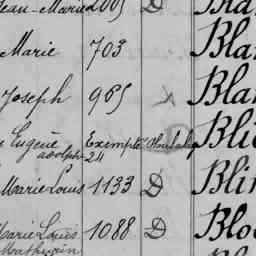 Jean-Marie 2005 D Bla
Marie 703 Blan
Joseph 965 X Blan
Eugène Exempté
adolphe 24 Bli
Marie Louis 1133 D Blin
Marie Louis 1088 D Blo
Mathurin